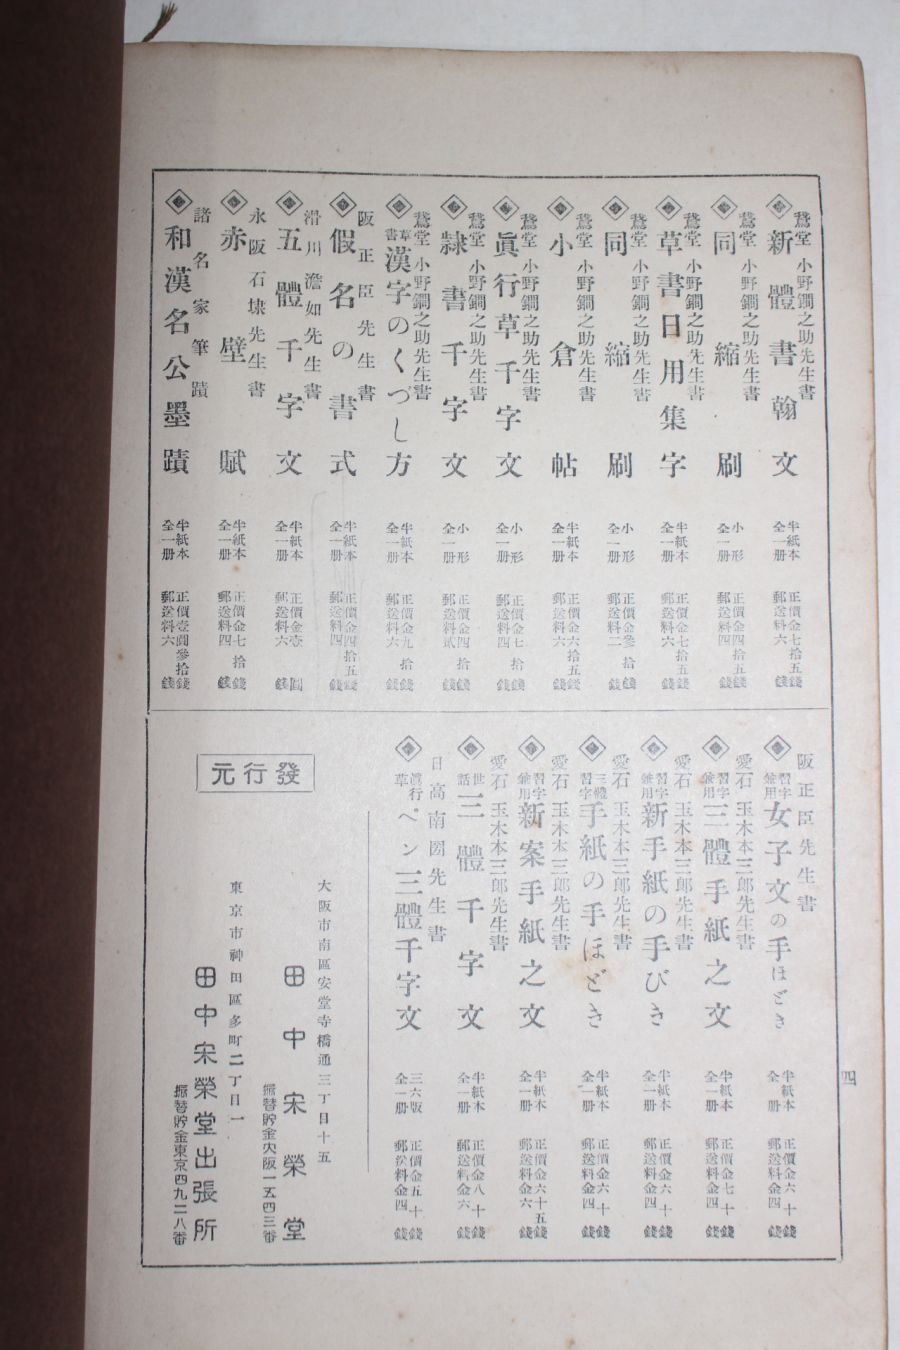 鵞堂 小野鐗之助先生書
新體書翰文 半紙本全一册 正價金七拾五錢 郵送料六錢
鵞堂 小野鐗之助先生書
同縮刷 小形全一册 正價金四拾錢 郵送料四錢
鵞堂 小野鐗之助先生書
草書日用集字 半紙本全一册 正價金七拾五錢 郵送料六錢
鵞堂 小野鐗之助先生書
同縮刷 小形全一册 正價金參拾錢 郵送料二錢
鵞堂 小野鐗之助先生書
小倉帖 半紙本全一册 正價金六拾五錢 郵送料六錢
鵞堂 小野鐗之助先生書
眞行草千字文 小形全一册 正價金七拾錢 郵送料四錢
鵞堂 小野鐗之助先生書
隷書千字文 小形全一册 正價金四拾錢 郵送料貳錢
鵞堂 小野鐗之助先生書
草書漢字のくづし方 半紙本全一册 正價金九拾錢 郵送料六錢
阪正臣先生書
假名の書式 半紙本全一册 正價金四拾五錢 郵送料四錢
滑川澹如先生書
五體千字文 半紙本全一册 正價金壹圓 郵送料六錢
永阪石埭先生書
赤壁賦 半紙本全一册 正價金七拾錢 郵送料四錢
諸名家筆蹟
和漢名公墨蹟 半紙本全一册 正價壹圓參拾錢 郵送料六錢
阪正臣先生書
習字兼用 女子文の手ほどき 半紙本全一册 正價金六十錢 郵送料金四錢
愛石 玉木本三郎先生書
習字兼用 三體手紙之文 半紙本全一册 正價金七十錢 郵送料金四錢
愛石 玉木本三郎先生書
習字兼用 新手紙の手びき 半紙本全一册 正價金六十錢 郵送料金四錢
愛石 玉木本三郎先生書
三體習字 手紙の手ほどき 半紙本全一册 正價金六十錢 郵送料金四錢
愛石 玉木本三郎先生書
習字兼用 新案手紙之文 半紙本全一册 正價金六十五錢 郵送料金六錢
愛石 玉木本三郎先生書
世話 三體千字文 半紙本全一册 正價金八十錢 郵送料金六錢
日高南圀先生書
眞行草 ペン三體千字文 三六版全一册 正價金五十錢 郵送料金四錢
發行元
大阪市南區安堂寺橋通三丁目十五
田中宋榮堂
振替貯金大阪一五四三番
東京市神田區多町二丁目一
田中宋榮堂出張所
振替貯金東京四九二八番
四